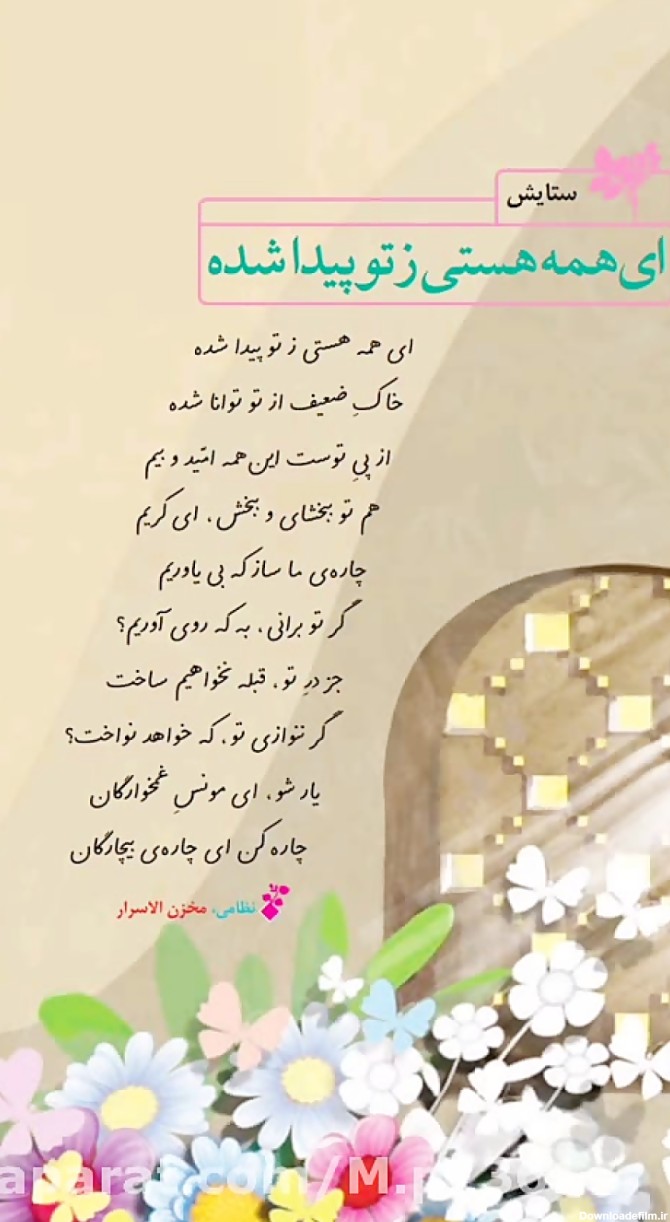 ستایش
ای همه هستی ز تو پیدا شده
ای همه هستی ز تو پیدا شده
خاکِ ضعیف از تو توانا شده
از پیِ توست این همه امّید و بیم
هم تو ببخشای و ببخش، ای کریم
چاره‌ی ما ساز که بی یاوریم
گر تو برانی، به که روی آوریم؟
جز درِ تو، قبله نخواهیم ساخت
گر ننوازی تو، که خواهد نواخت؟
یار شو، ای مونسِ غمخوارگان
چاره کن ای چاره‌ی بیچارگان
نظامی، مخزن الاسرار
Downloadefilm.ir